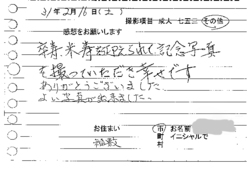 31年2月16日(土)
撮影項目 成人 七五三 その他
感想をお願いします
米寿を迎えられて記念写真
を撮っていただき幸せです
ありがとうございました
よい写真が出来ました。
お住まい
市 町 村
お名前
イニシャルで